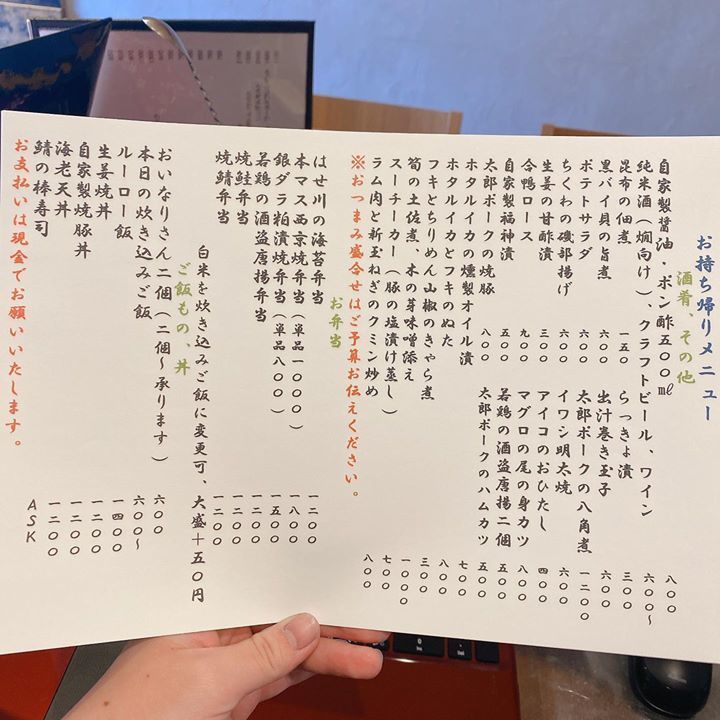 お持ち帰りメニュー
酒肴、その他
自家製醤油・ポン酢五〇〇㎖ 八〇〇
純米酒(燗向け)、クラフトビール、ワイン 六〇〇〜
昆布の佃煮 一五〇 らっきょ漬 三〇〇
黒バイ貝の旨煮 六〇〇 出汁巻き玉子 六〇〇
ポテトサラダ 六〇〇 太郎ポークの八角煮 一二〇〇
ちくわの磯部揚げ 六〇〇 イワシ明太焼 六〇〇
生姜の甘酢漬 三〇〇 アイコのおひたし 四〇〇
合鴨ロース 九〇〇 マグロの尾の身カツ 八〇〇
自家製福神漬 五〇〇 若鶏の酒盗唐揚二個 五〇〇
太郎ポークの焼豚 八〇〇 太郎ポークのハムカツ 五〇〇
ホタルイカの燻製オイル漬 七〇〇
ホタルイカとフキのぬた 八〇〇
フキとちりめん山椒のきゃら煮 三〇〇
筍の土佐煮、木の芽味噌添え 一〇〇〇
スーチーカー(豚の塩漬け蒸し) 七〇〇
ラム肉と新玉ねぎのクミン炒め 八〇〇
※おつまみ盛合せはご予算お伝えください。
お弁当
はせ川の海苔弁当 一二〇〇
本マス西京焼弁当(単品一〇〇〇) 一八〇〇
銀ダラ粕漬焼弁当(単品八〇〇) 一五〇〇
若鶏の酒盗唐揚弁当 一二〇〇
焼鮭弁当 一二〇〇
焼鯖弁当 一二〇〇
白米を炊き込みご飯に変更可、大盛+五〇円
ご飯もの、丼
おいなりさん二個(二個〜承ります) 六〇〇
本日の炊き込みご飯 六〇〇〜
ルーロー飯 一四〇〇
生姜焼丼 一二〇〇
自家製焼豚丼 一二〇〇
海老天丼 一二〇〇
鯖の棒寿司 ASK
お支払いは現金でお願いいたします。